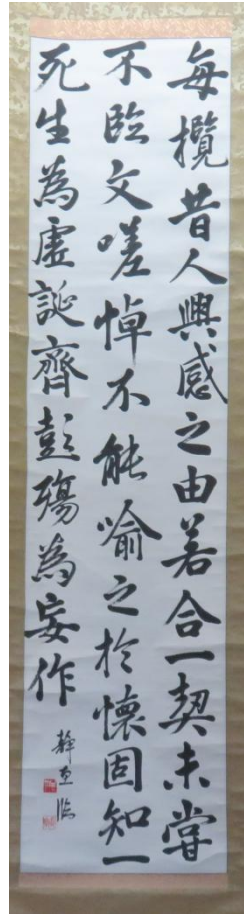 每攬昔人興感之由若合一契未嘗
不臨文嗟悼不能喻之於懷固知一
死生為虛誕齊彭殤為妄作